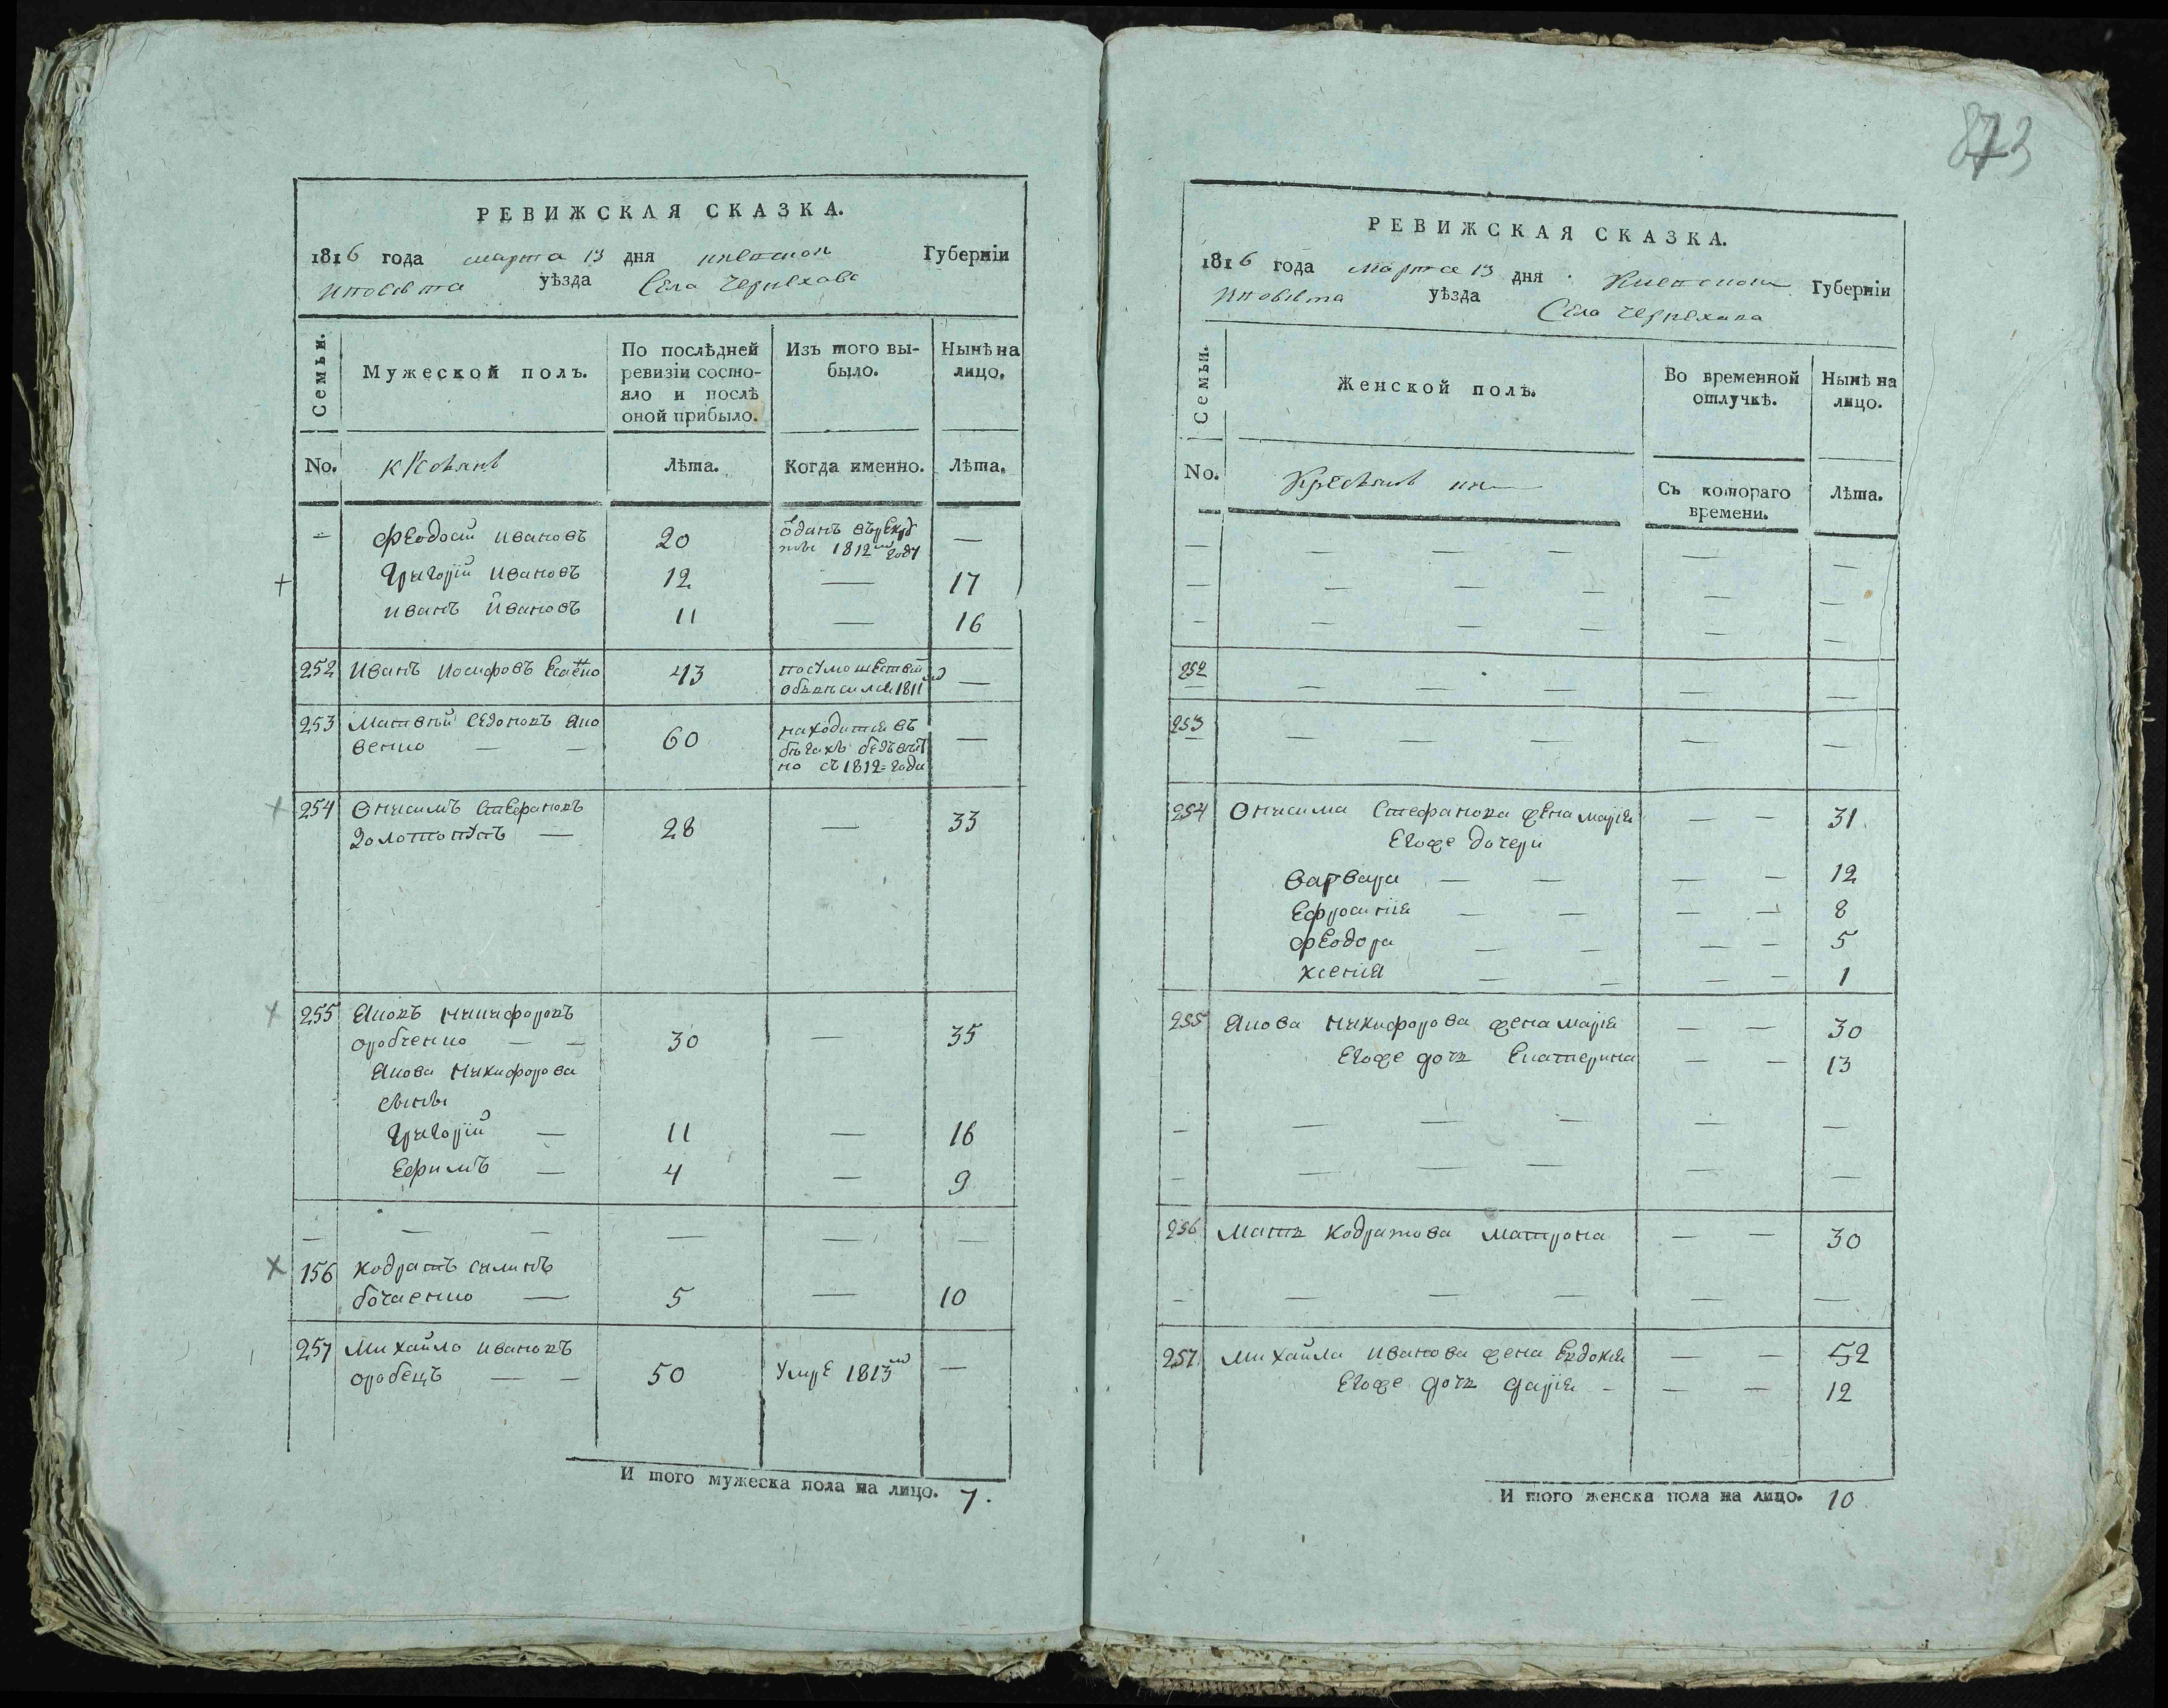 873
РЕВИЖСКАЯ СКАЗКА.
1816 года марта 13 дня Губерніи
уѣзда Села Чернехова
Семьи.
Мужеской полъ.
По послѣдней
ревизіи состо-
яло и послѣ
оной прибыло.
Изъ того вы-
было.
Нынѣ на
лицо.
No.
Лѣта.
Когда именно.
Лѣта.
— Феодосій Ивановъ 20 —
1812 году
Григорій Ивановъ 12 — 17
Иванъ Ивановъ 11 — 16
252 Иванъ Иосифовъ 43 —
1811
253 Матвѣй
венко — — 60 находится въ —
бѣгахъ безъвѣст
но съ 1812 = года
254 Онисимъ Стефановъ
Золотопупъ — 28 — 33
255 Яковъ Никифоровъ
оробченко — — 30 — 35
Якова Никифорова
сыны
Григорій — 11 — 16
Ефимъ — 4 — 9
— — — — — —
156 Кодратъ Силинъ
— 5 — 10
257 Михайло Ивановъ
оробецъ — — 50 умре 1813 —
И того мужеска пола на лицо. 7.
РЕВИЖСКАЯ СКАЗКА.
1816 года Марта 13 дня Губерніи
уѣзда Села Чернехова
Семьи.
Женской полъ.
Во временной
отлучкѣ.
Нынѣ на
лицо.
No.
Съ котораго
времени.
Лѣта.
— — — — — —
— — — — — —
— — — — — —
252 — — — — —
253 — — — — —
254 Онисима Стефанова жена Марія — — 31
Егоже дочери
Варвара — — — — 12
Ефросинія — — — — 8
Феодора — — — — 5
Ксенія — — — — 1
255 Якова Никифорова жена Марія — — 30
Егоже дочь Екатерина — — 13
— — — — — —
— — — — — —
256 Мать Кодратова Матрона — — 30
— — — — — —
257 Михайла Иванова жена Евдокія — — 52
Егоже дочь Дарія — — — 12
И того женска пола на лицо. 10